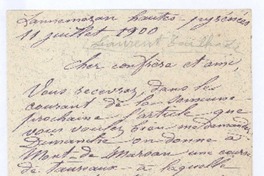 Lannemezan hautes-pyrénées
11 juillet 1900
(Laurent Tailhade)
Cher confrère et ami,
Vous recevrez, dans le
courant de la semaine
prochaine l'article que
vous voulez bien me demander.
Dimanche on donne à
Mont-de-Marsan une course
de Taureaux à laquelle